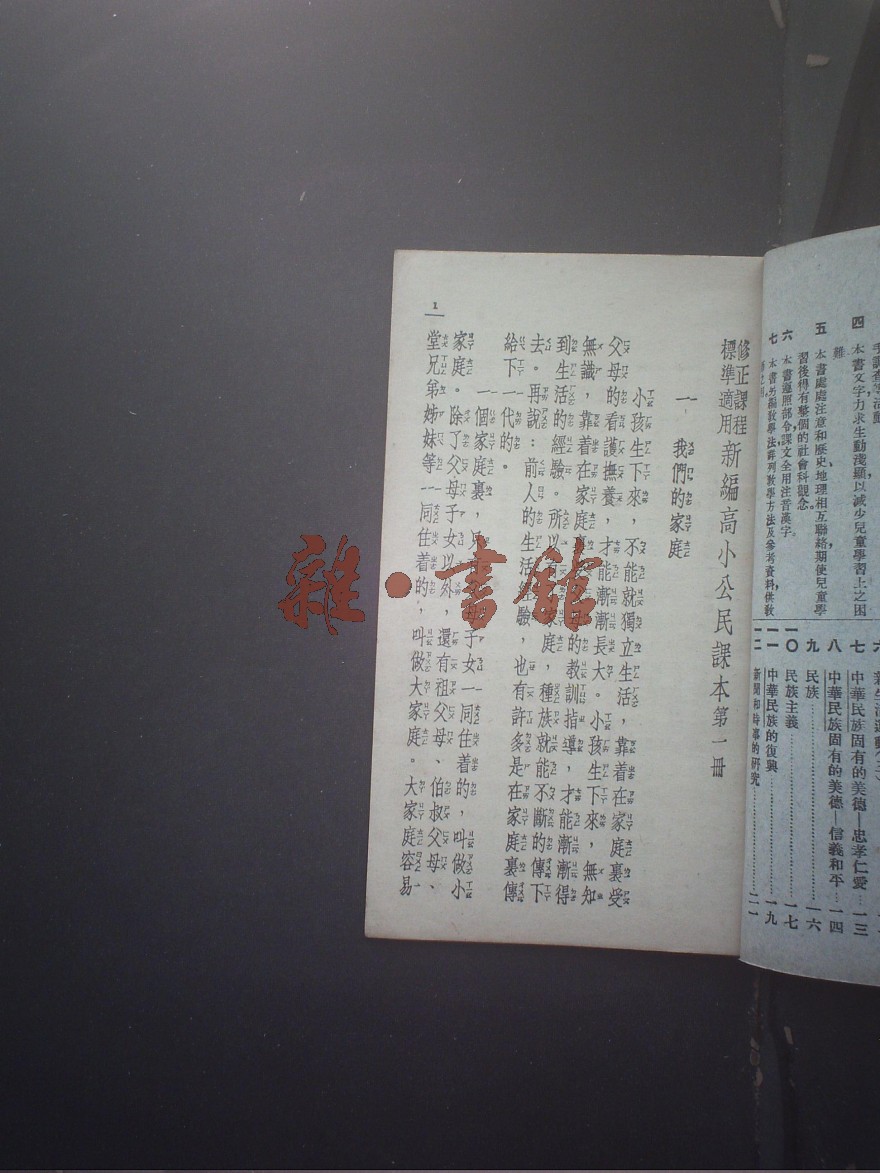 四 本書文字力求生動淺顯以減少兒童學習上之困
難
五 本書處處注意和歷史,地理相互聯絡期使兒童學
習後得有整個的社會科觀念。
六 本書遵照部令,課文全用注音漢字。
七 本書另編教學法詳列教學方法及參考資料,供教
七 中華民族固有的美德—忠孝仁愛……一三
八 中華民族固有的美德—信義和平…一四
九 民族……一六
一〇 民族主義……一七
一一 中華民族的復興……一九
一二 新聞和時事的研究……二一
修正課程
標準適用
新編高小公民課本第一冊
一 我們的家庭
小孩生下來,不能就獨立生活,靠着在家庭裏受
父母的看護撫養,才能漸漸長大。小孩生下來,無知
無識,靠着在家庭裏的教訓指導,才能漸漸得
到生活的經驗。所以家庭,種族就能不斷的傳下
去。再說:前人的生活經驗,也有許多是在家庭裏傳
給下一代的。
一個家庭裏,只子女一同住着的,叫做小
家庭。除了父母子女以外,還有祖父母、伯叔父母、
堂兄弟姊妹等一同住着的,叫做大家庭。大家庭容易
1
雜·書館